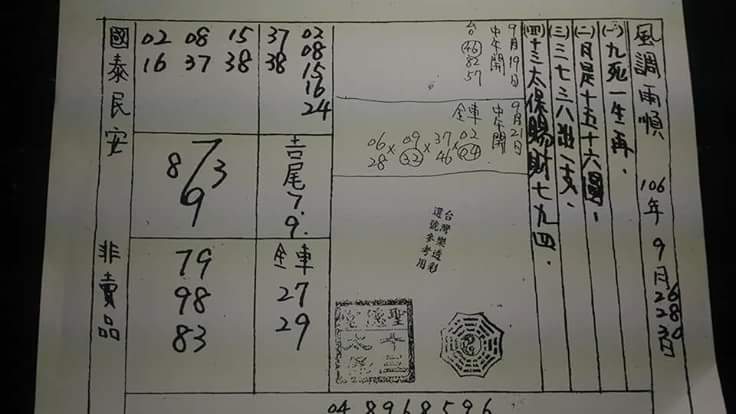 風調雨順 106年 9月 26 28 30日
(一)九死一生再.
(二)月是十五十六圓.
(三)三七三八出一支.
(四)十三太保賜財七九四.
9月19日
中午開
台 46 82 57
9月21日
中午開
全車
02 24 × 37 46 × 09 32 × 06 28
台灣樂透彩
選號參考用
聖
十三
太
37 02
38 08
15
16
24
吉尾7.9.
全車
27
29
02 08 15
16 37 38
7
8 3
9
79
98
83
國泰民安 非賣品
04 8968596